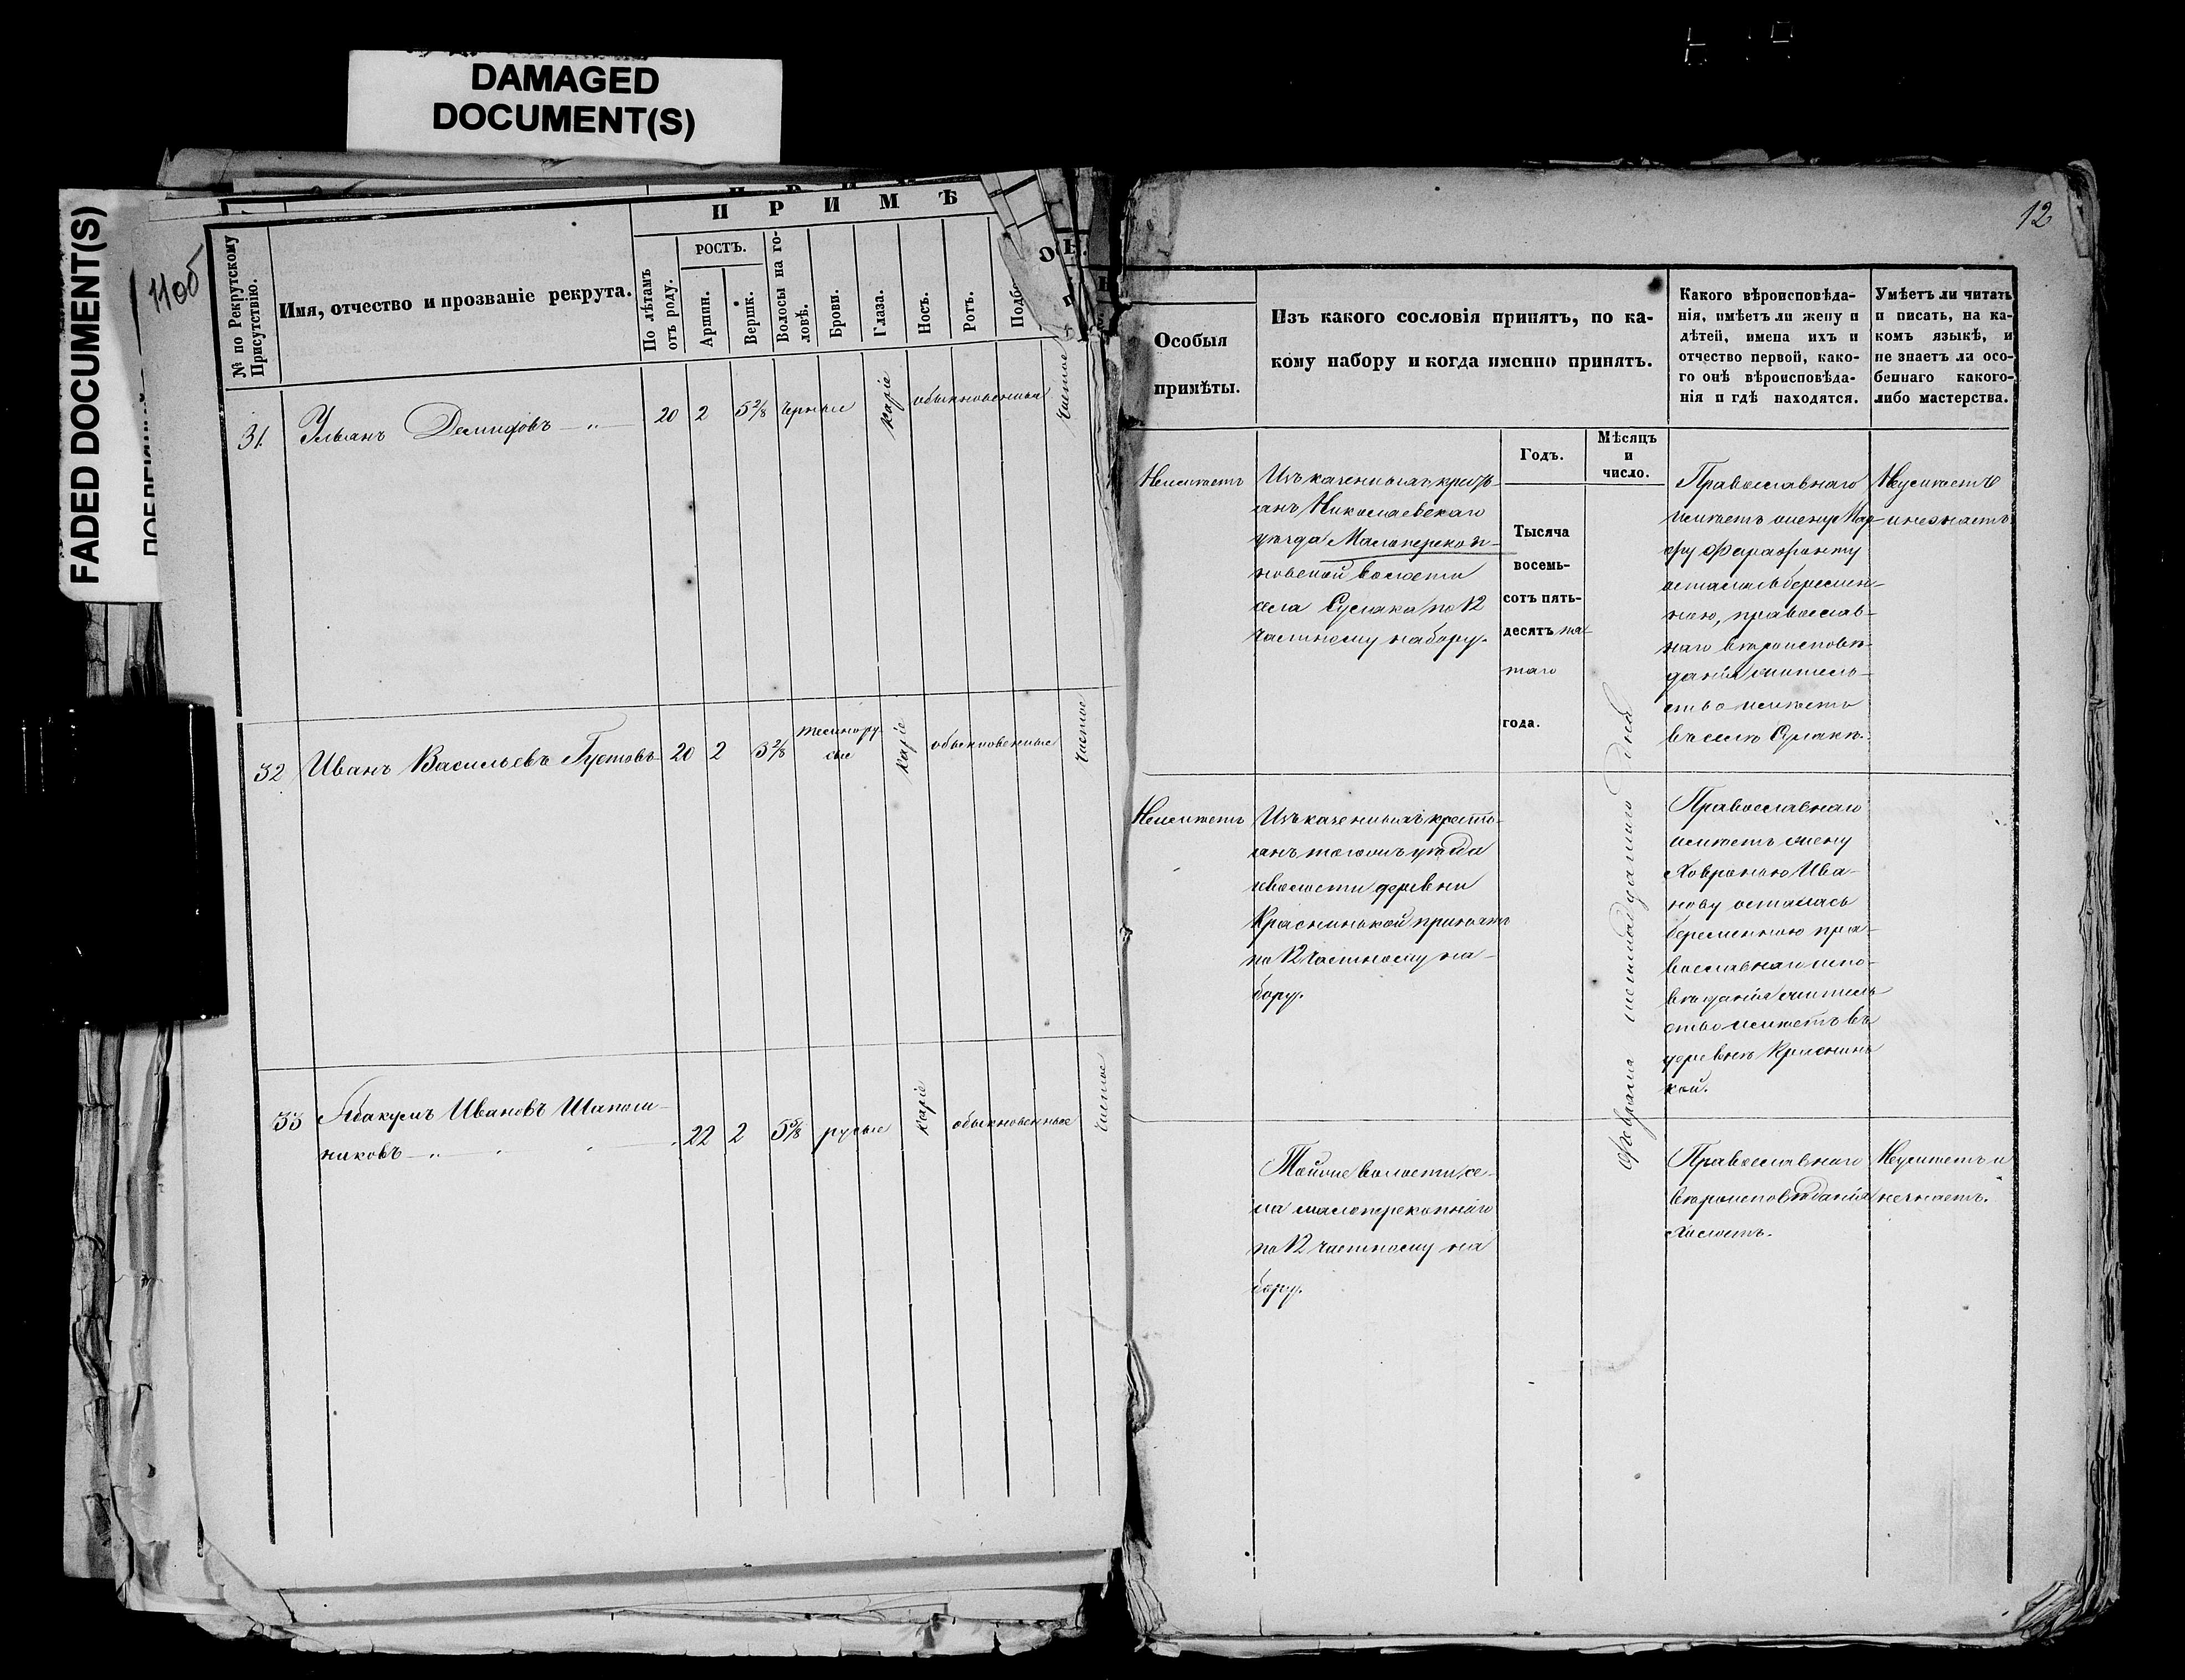 DAMAGED
DOCUMENT(S)
FADED DOCUMENT(S)
11об
П Р И М Ѣ
№ по Рекрутскому
Присутствію.
Имя, отчество и прозваніе рекрута.
По лѣтамъ
отъ роду.
РОСТЪ.
Аршин.
Вершк.
Волосы на го-
ловѣ.
Брови.
Глаза.
Носъ.
Ротъ.
Подбо
31. Ульянъ Демидовъ 20 2 5 2/8 черные каріе обыкновенныя чистое
32 Иванъ Васильевъ Густовъ 20 2 3 2/8 темнору-
сые каріе обыкновенные чистое
33 Абакумъ Ивановъ Шапош-
никовъ 22 2 5 5/8 русые каріе обыкновенные чистое
12
Особыя
примѣты.
Изъ какого сословія принятъ, по ка-
кому набору и когда именно принятъ.
Какого вѣроисповѣда-
нія, имѣетъ ли жену и
дѣтей, имена ихъ и
отчество первой, како-
го онѣ вѣроисповѣда-
нія и гдѣ находятся.
Умѣетъ ли читать
и писать, на ка-
комъ языкѣ, и
не знаетъ ли осо-
беннаго какого-
либо мастерства.
Годъ.
Мѣсяцъ
и
число.
Неимѣетъ
Изъ казенныхъ кресть-
янъ Николаевскаго
уѣзда Малоперекоп-
новской волости
села Сулака по 12
частному набору.
Тысяча
восемь-
сотъ пять-
десятъ пя-
таго
года.
Февраля шестнадцатого дня
Православнаго
имѣетъ жену Мар-
фу Ферафонту
осталась беремен-
ною, православ-
наго вѣроисповѣ-
данія жительс-
тво имѣетъ
въ селѣ Сулакѣ.
Неумѣетъ
и незнаетъ
Неимѣетъ
Изъ казенныхъ кресть-
янъ тогожъ уѣзда
и волости деревни
Красненькой принятъ
по 12 частному на-
бору.
Православнаго
имѣетъ жену
Ховронью Ива-
нову осталась
беременною пра-
вославнаго испо-
вѣданія жительс-
тво имѣетъ въ
деревнѣ Краснинь
кой.
Тойже волости се-
ла малоперекопнаго
по 12 частному на
бору.
Православнаго
вѣроисповѣданія
Холостъ.
Неумѣетъ и
незнаетъ.